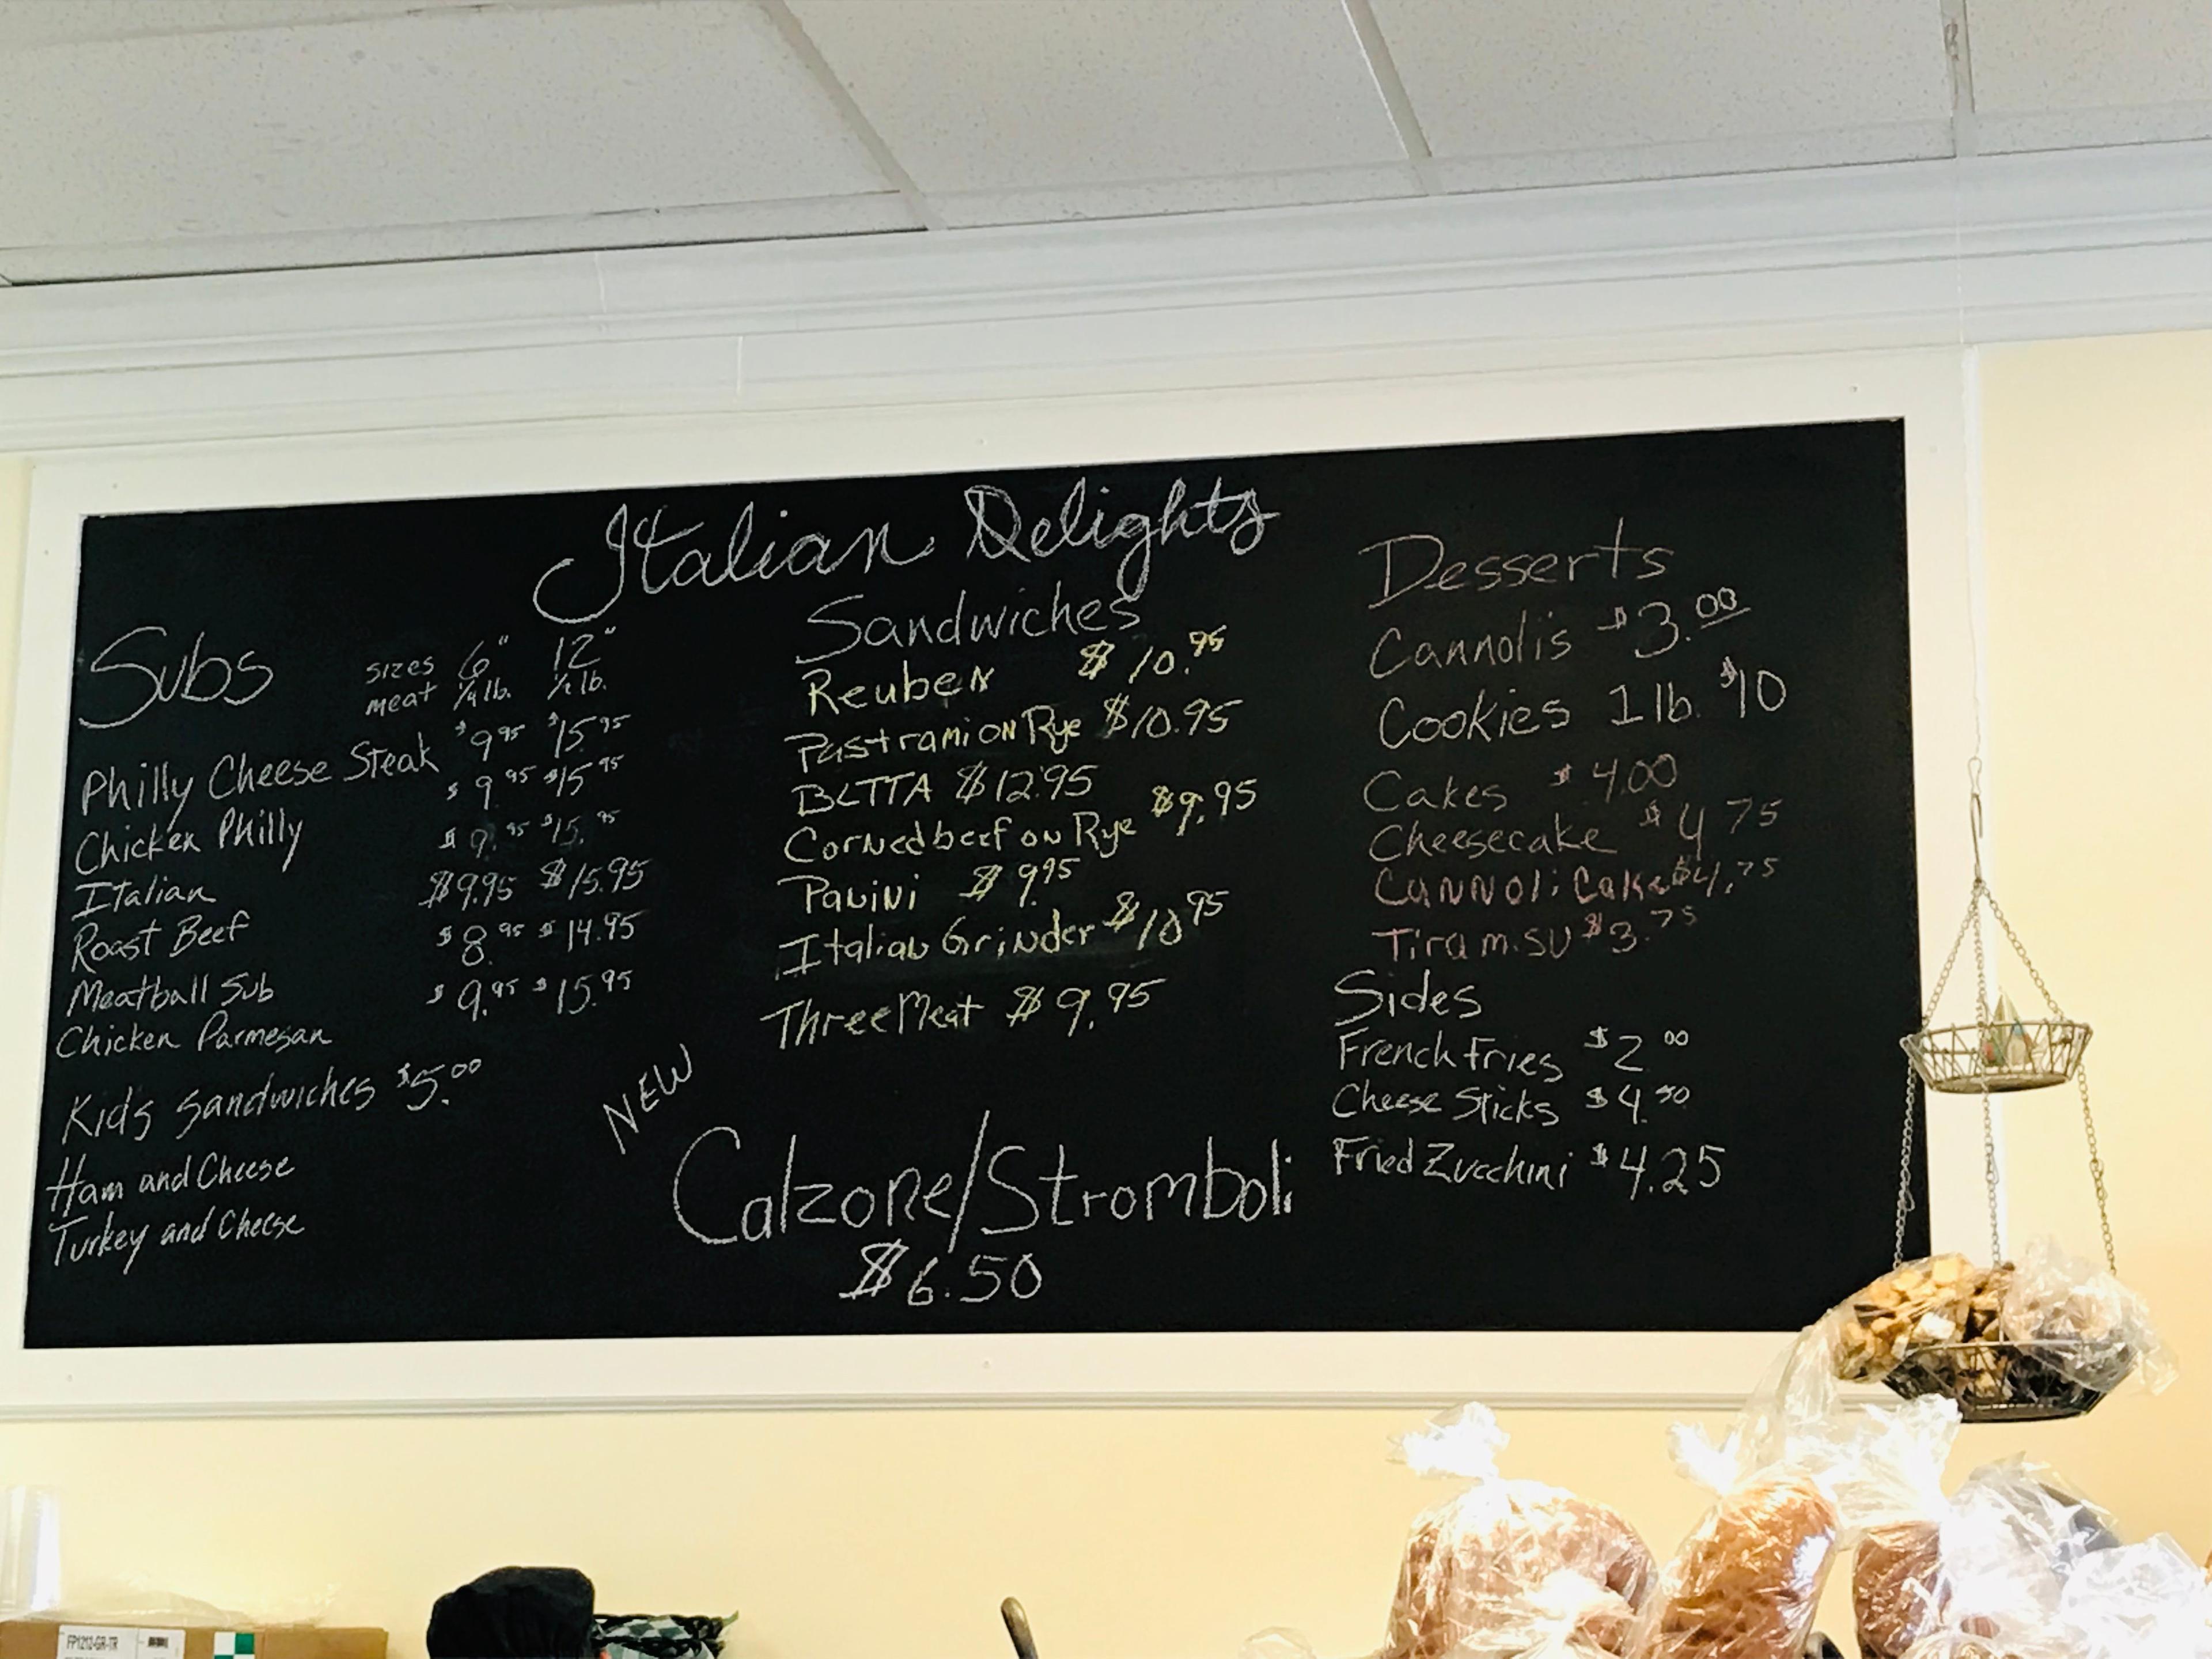 Italian Delights
Subs sizes 6" 12"
meat 1/4 lb. 1/2 lb.
Philly Cheese Steak $9.95 $15.95
Chicken Philly $9.95 $15.95
Italian $9.95 $15.95
Roast Beef $9.95 $15.95
Meatball Sub $8.95 $14.95
Chicken Parmesan $9.95 $15.95
Kid's Sandwiches $5.00
Ham and Cheese
Turkey and Cheese
Sandwiches
Reuben $10.95
Pastrami on Rye $10.95
BLTTA $12.95
Corned beef on Rye $9.95
Panini $9.95
Italian Grinder $10.95
Three Meat $9.95
NEW
Calzone/Stromboli
$6.50
Desserts
Cannoli's $3.00
Cookies 1 lb. $10
Cakes $4.00
Cheesecake $4.75
Cannoli Cake $4.75
Tiramisu $3.75
Sides
French Fries $2.00
Cheese Sticks $4.50
Fried Zucchini $4.25
FP1212-GR-TR